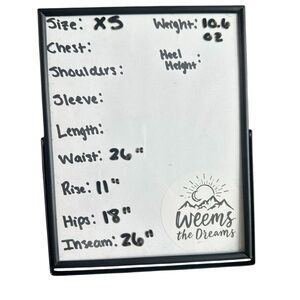 Size: XS
Weight: 10.6
oz
Chest:
Heel
Height:
Shoulders:
Sleeve:
Length:
Waist: 26"
Rise: 11"
Hips: 18"
Inseam: 26"
Weems
the Dreams